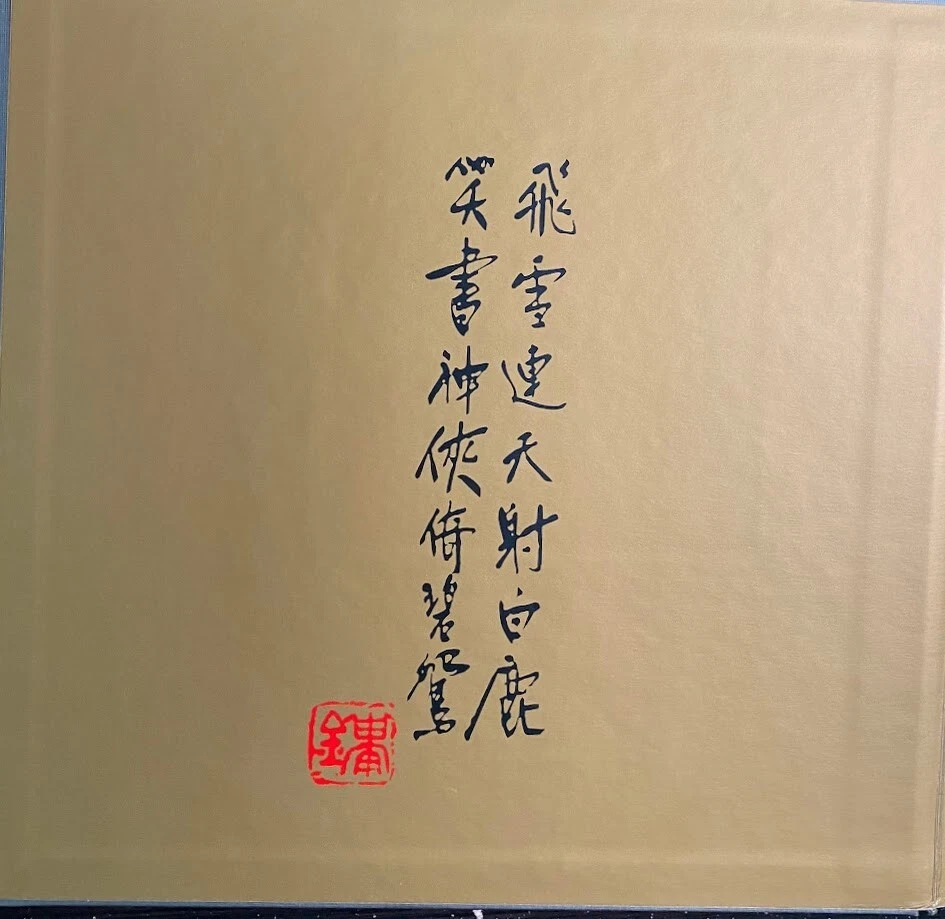 飛雪連天射白鹿
笑書神俠倚碧鴛
鏞